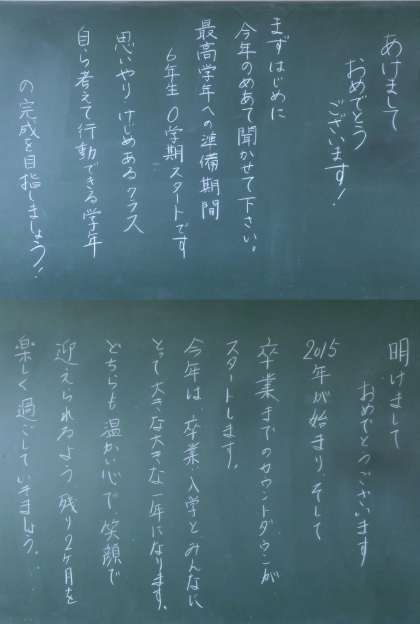 あけまして
おめでとう
ございます!
まずはじめに
今年のめあて聞かせて下さい。
最高学年への準備期間
6年生 0学期スタートです
思いやりけじめあるクラス
自ら考えて行動できる学年
の完成を目指しましょう!
明けまして
おめでとうございます
2015年が始まり、そして
卒業までのカウントダウンが
スタートします。
今年は、卒業、入学とみんなに
とって大きな大きな一年になります。
どちらも温かい心で、笑顔で
迎えられるよう、残り2ヶ月を
楽しく過ごしていきましょう。